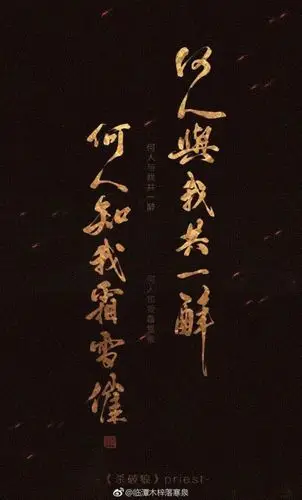 何人與我共一醉
何人知我霜雪催
何人与我共一醉
何人知我霜雪催
-《杀破狼》priest-
@临潭木梓落寒泉